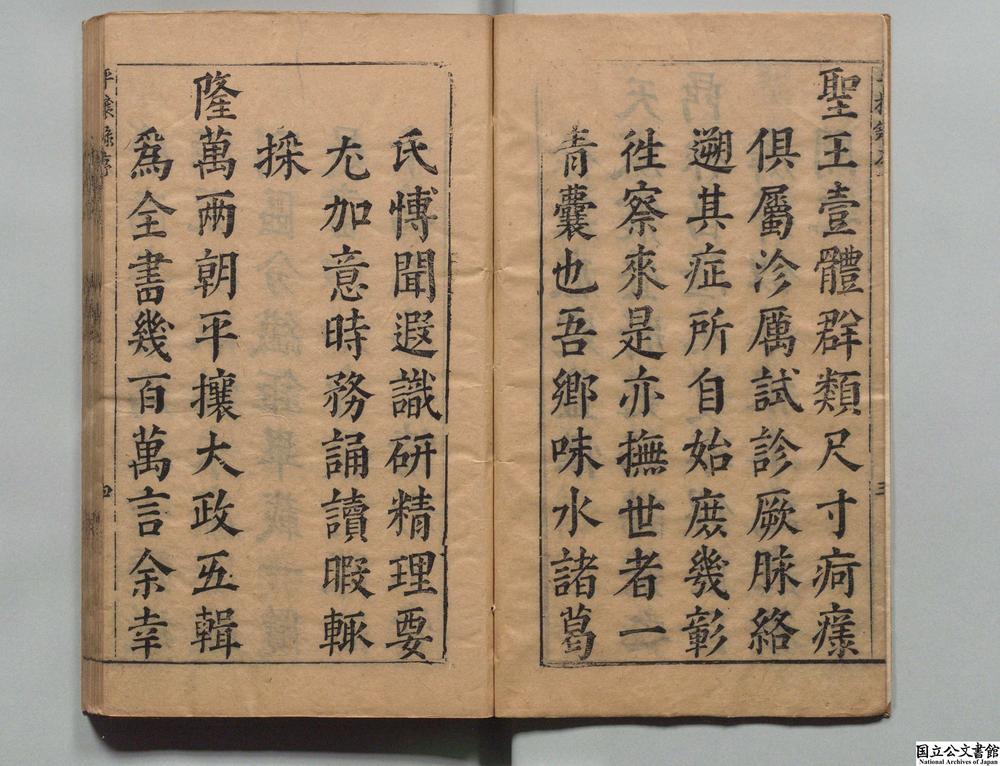 聖王壹體群類尺寸疴癢
俱屬沴厲試診厥脉絡
遡其症所自始庶幾彰
徃察來是亦撫世者一
青囊也吾鄉味水諸葛
氏愽聞遐識研精理要
尤加意時務誦讀暇輒
採
隆萬兩朝平攘大政五輯
爲全書幾百萬言余幸
平攘錄序
四
国立公文書館
National Archives of Japan